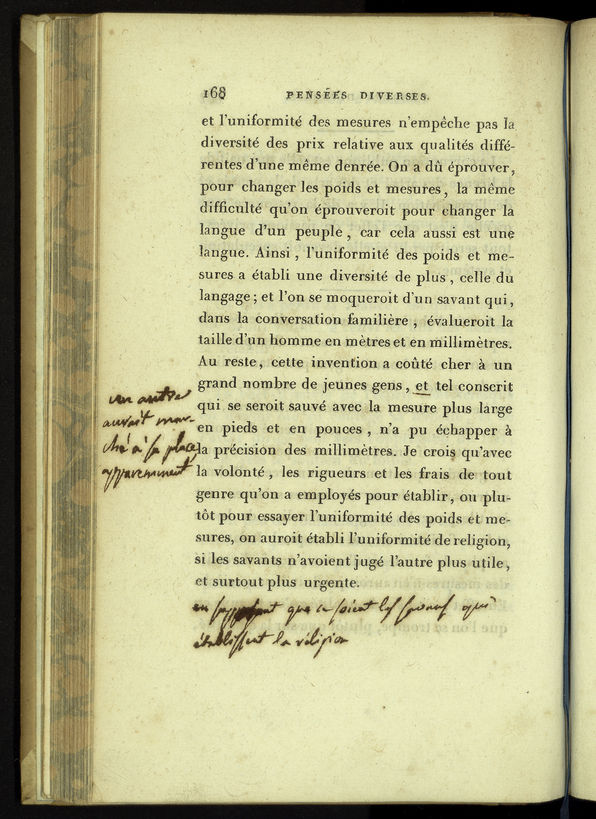 168 PENSÉES DIVERSES.
et l'uniformité des mesures n'empêche pas la
diversité des prix relative aux qualités diffé-
rentes d'une même denrée. On a dû éprouver,
pour changer les poids et mesures, la même
difficulté qu'on éprouveroit pour changer la
langue d'un peuple, car cela aussi est une
langue. Ainsi, l'uniformité des poids et me-
sures a établi une diversité de plus, celle du
langage; et l'on se moqueroit d'un savant qui,
dans la conversation familière, évalueroit la
taille d'un homme en mètres et en millimètres.
Au reste, cette invention a coûté cher à un
grand nombre de jeunes gens, et tel conscrit
qui se seroit sauvé avec la mesure plus large
en pieds et en pouces, n'a pu échapper à
la précision des millimètres. Je crois qu'avec
la volonté, les rigueurs et les frais de tout
genre qu'on a employés pour établir, ou plu-
tôt pour essayer l'uniformité des poids et me-
sures, on auroit établi l'uniformité de religion,
si les savants n'avoient jugé l'autre plus utile,
et surtout plus urgente.
un autre
aurait mar-
ché à sa place
apparemment
en supposant que ce soient les qui
établissent la religion